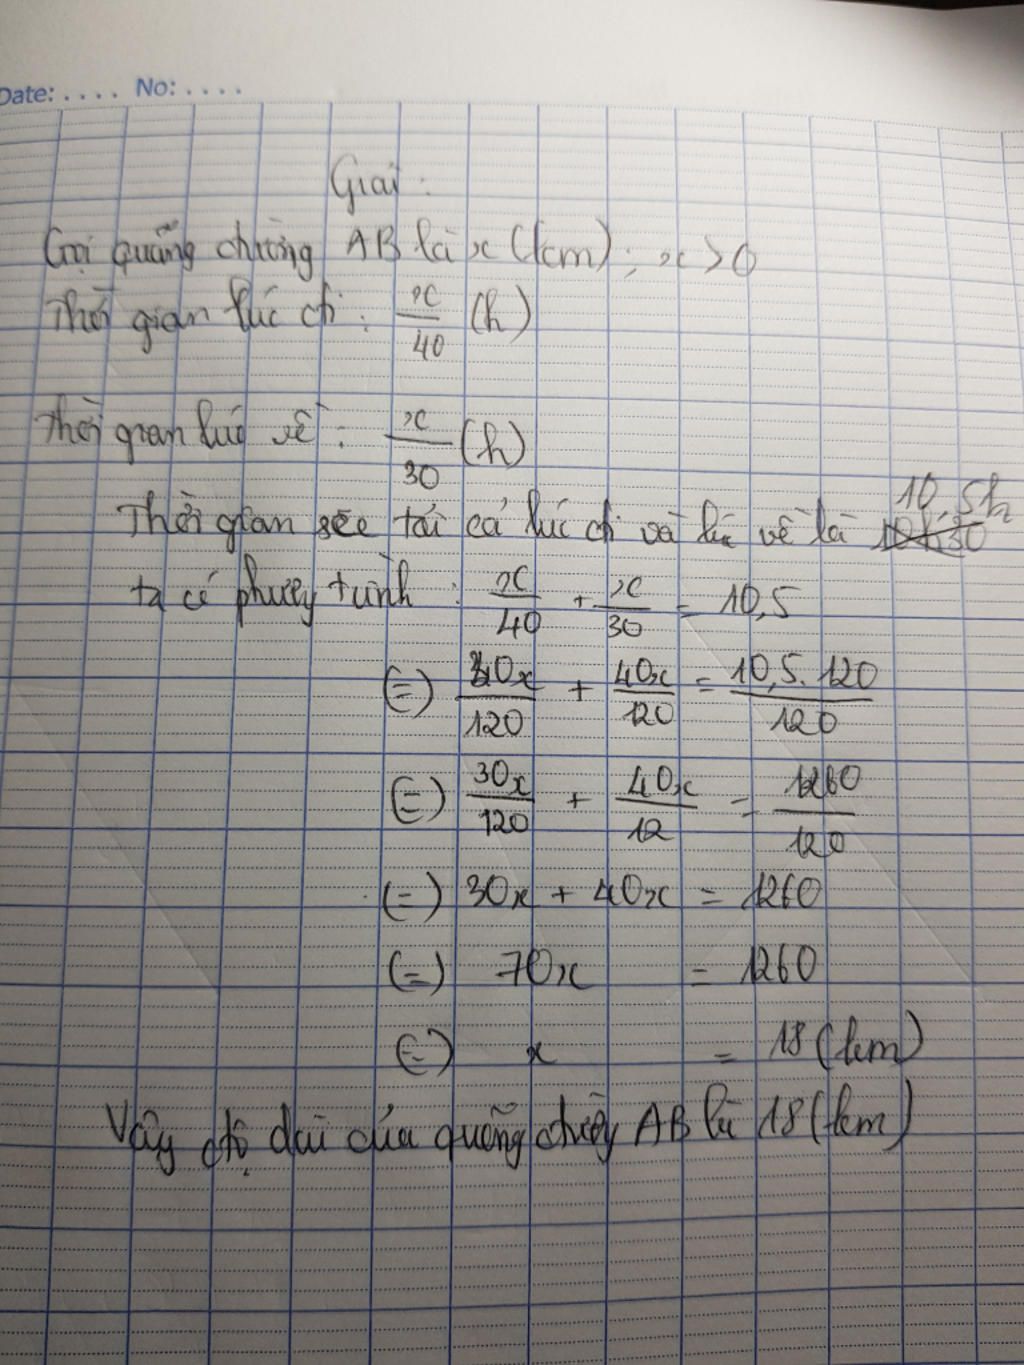 Date: .... No: ....
Giải:
Gọi quãng đường AB là x (km); x > 0
Thời gian lúc đi: x/40 (h)
Thời gian lúc về: x/30 (h)
10,5h
Thời gian tất cả lúc đi và lúc về là 10h30
ta có phương trình: x/40 + x/30 = 10,5
(=) 30x/120 + 40x/120 = 10,5.120/120
(=) 30x/120 + 40x/12 = 1260/120
(=) 30x + 40x = 1260
(=) 70x = 1260
(=) x = 18 (km)
Vậy độ dài của quãng đường AB là 18 (km)